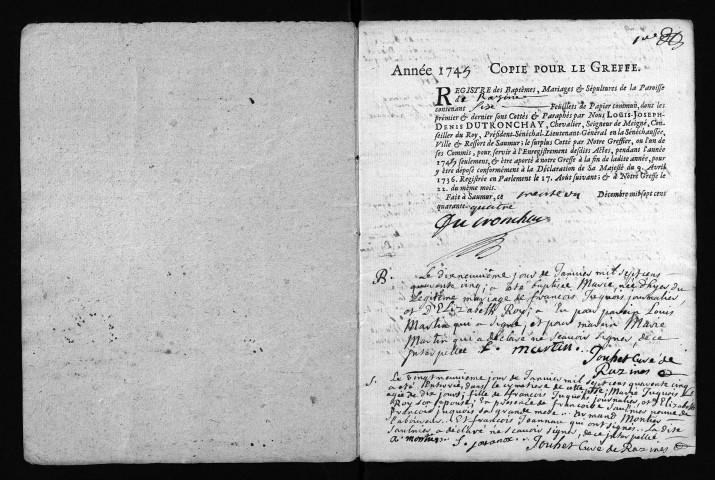 Année 1745 COPIE POUR LE GREFFE.
REGISTRE des Baptêmes, Mariages & Sépultures de la Paroisse
de Razine
contenant Sise Feuillets de Papier commun, dont les
prémier & dernier sont Cottés & Paraphés par Nous LOUIS-JOSEPH-
DENIS DUTRONCHAY, Chevalier, Seigneur de Meigné, Con-
seiller du Roy, Président-Sénéchal-Lieutenant-Général en la Sénéchaussée,
Ville & Ressort de Saumur; le surplus Cotté par Notre Greffier, ou l'un de
ses Commis, pour servir à l'Enregistrement desdits Actes, pendant l'année
1745 seulement, & être aporté à notre Greffe à la fin de ladite année, pour
y être déposé conformément à la Déclaration de Sa Majesté du 9. Avril
1736. Registrée en Parlement le 17. Août suivant; & à Nôtre Greffe le
22. du même mois.
Fait à Saumur, ce trente un Décembre mil sept cent
quarante quatre
Dutronchay
B. Le dixneuvième jour de Janvier mil septcens
quarente cinq, a été baptisée Marie, née d'hyer du
Légitime mariage de françois Juquois journalier
et d'Elizabeth Roy; a eu pour parein Louis
Martin qui a signé, et pour mareine Marie
Martin qui a déclaré ne sçavoir signer, de ce
interpellée. L. martin. Jouhet Curé de
Razines
S. Le vingtneuvième jour de Janvier mil septcens quarente cinq
a été inhumée, dans le cymetiere de cette
agée de dix jours, fille de françois Juquois journalier, et Elizabeth
Roy son epouse; en présence de françoise Saulnier
françois Juquois sa grande mere armand Montier
laboureur. Et francois Joanneau qui ont signés. La dite
Saulnier a déclaré ne sçavoir signer, de ce interpellée.
a. montier Jouhet Curé de Razines